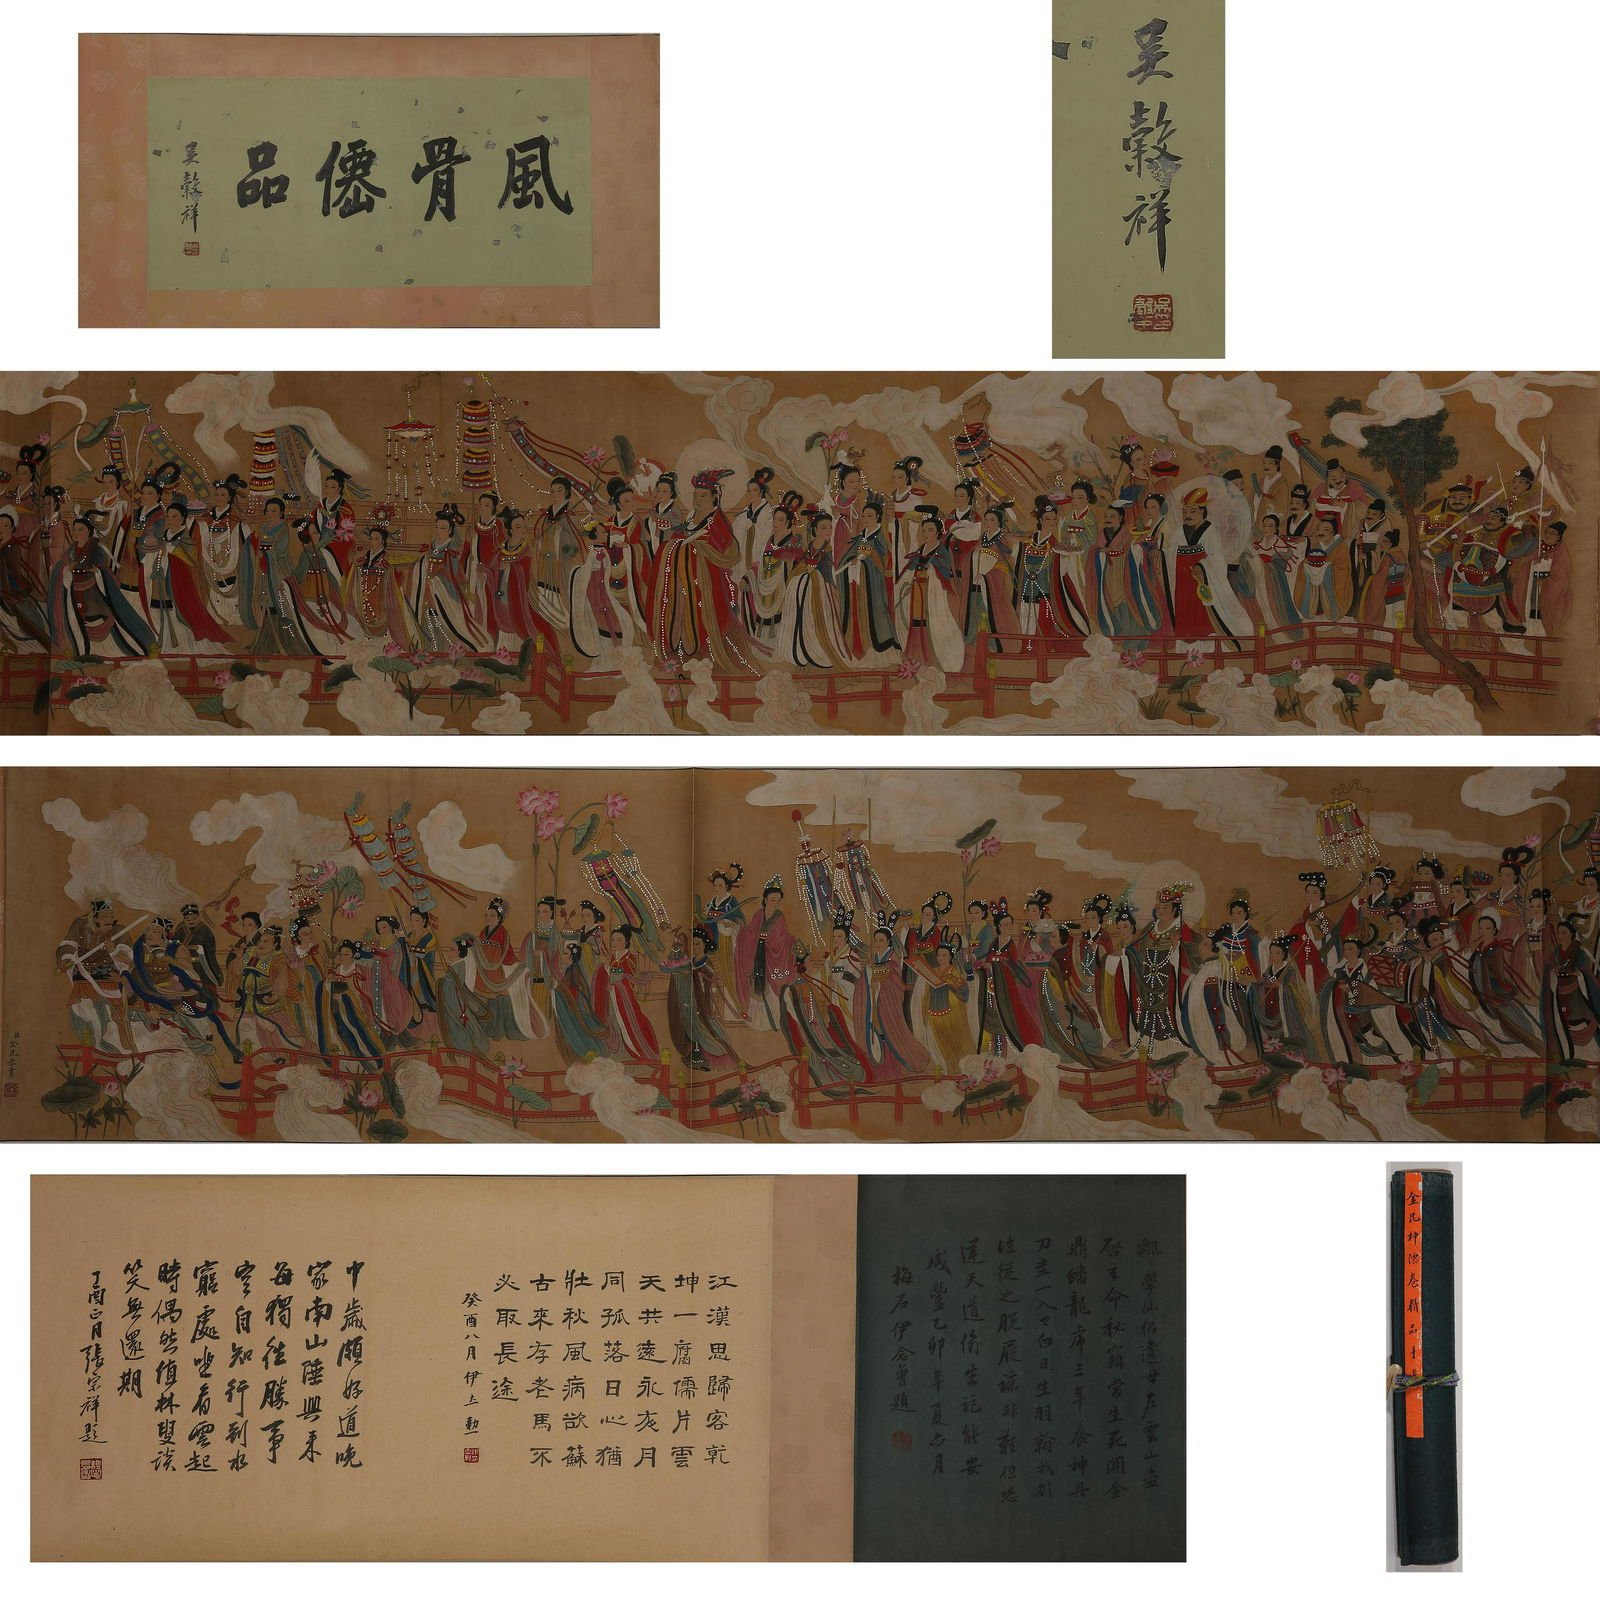 風骨僊品
吳穀祥
吳穀祥
臣金昆恭畫
江漢思歸客乾
坤一腐儒片雲
天共遠永夜月
同孤落日心猶
壯秋風病欲蘇
古來存老馬不
必取長途
癸酉八月伊立勳
中歲頗好道晚
家南山陲興來
每獨往勝事
空自知行到水
窮處坐看雲起
時偶然值林叟談
笑無還期
丁酉正月張宗祥題
飄飄學仙侶遺世在雲山
啓玄命秘竊當生死關金
鼎蟠龍席三年養神丹
刀圭一入口白日生羽翰我欲
往從之脫屣諒非難但恐
逆天道偷生詎能安
咸豐乙卯年夏六月
梅石伊念曾題
金昆神僊卷精品